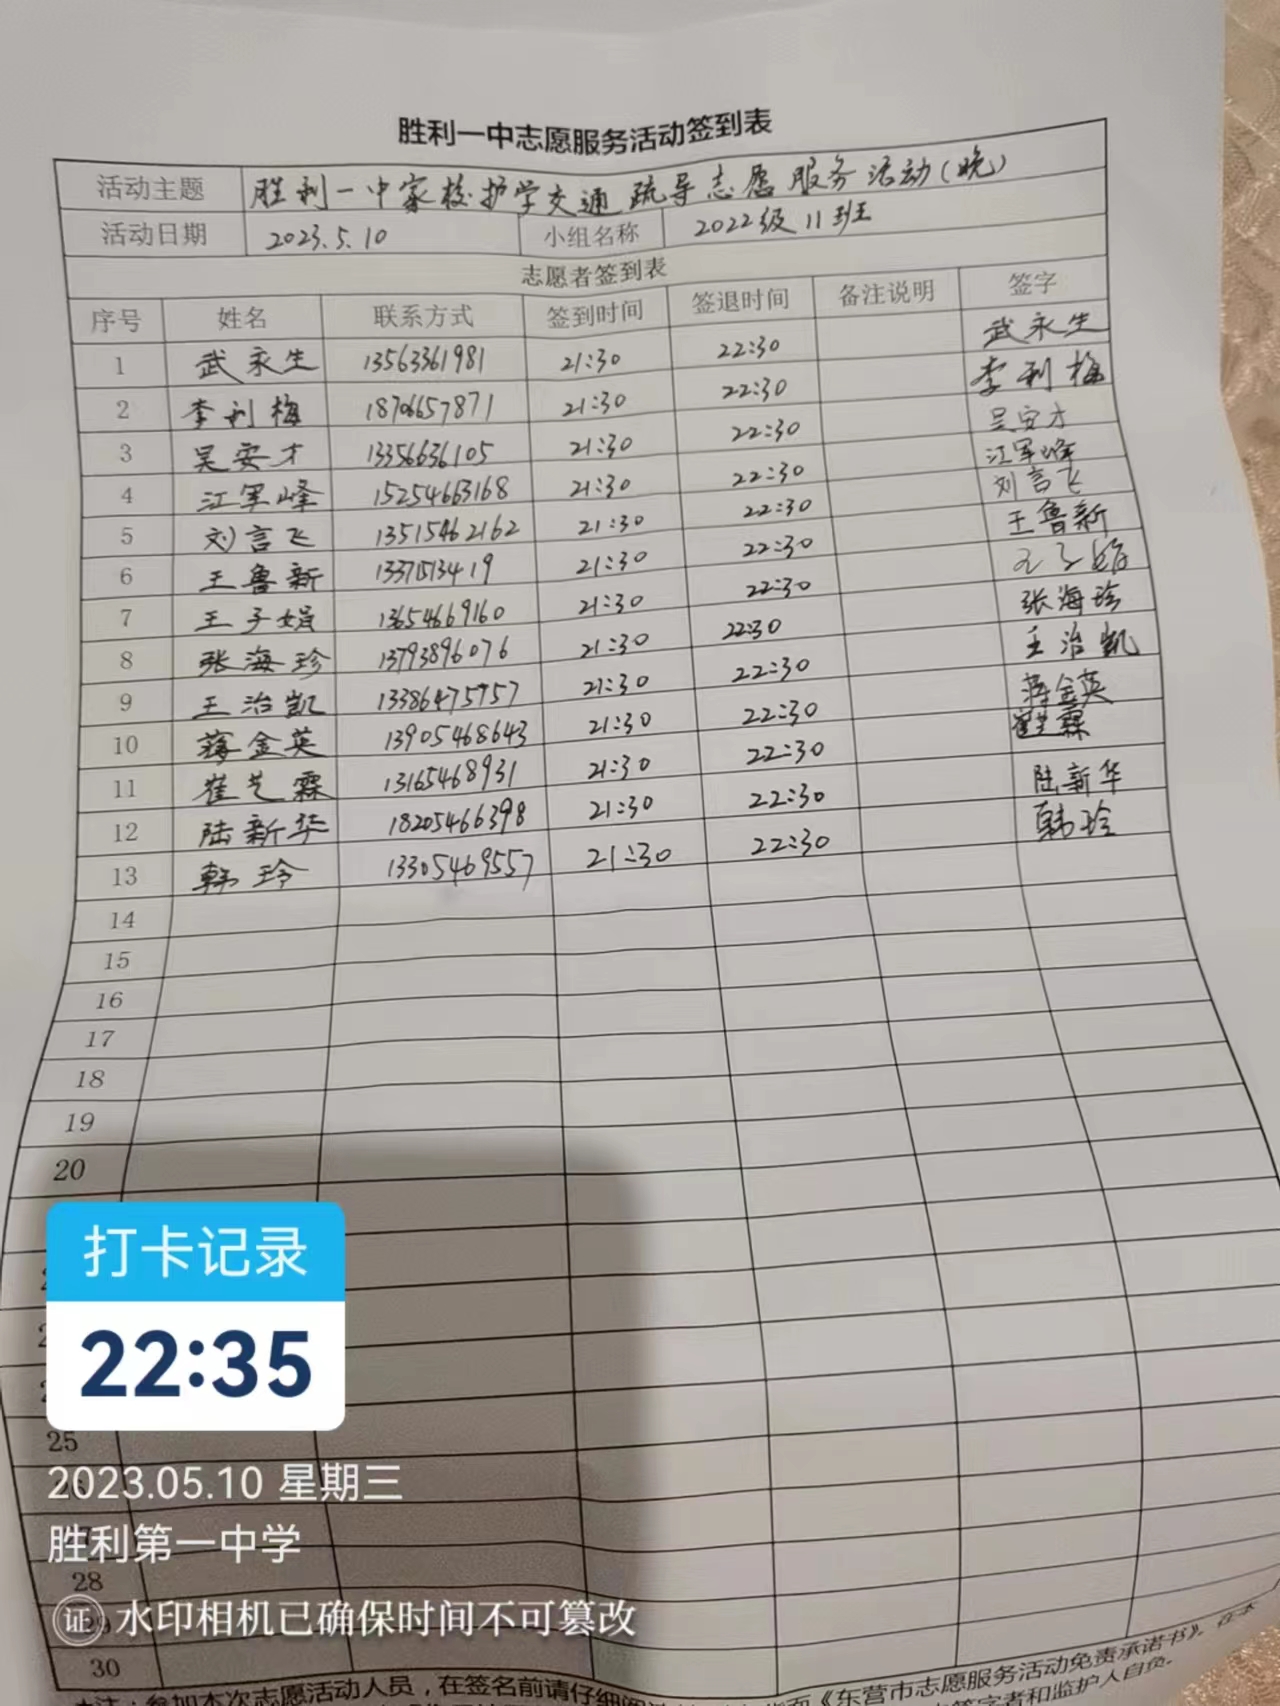 胜利一中志愿服务活动签到表
活动主题 胜利一中家校护学交通疏导志愿服务活动(晚)
活动日期 2023.5.10 小组名称 2022级11班
志愿者签到表
序号 姓名 联系方式 签到时间 签退时间 备注说明 签字
1 武永生 13563361981 21:30 22:30 武永生
2 李利梅 18706657871 21:30 22:30 李利梅
3 吴安才 13356636105 21:30 22:30 吴安才
4 江军峰 15254663168 21:30 22:30 江军峰
5 刘言飞 13515462162 21:30 22:30 刘言飞
6 王鲁新 13371513419 21:30 22:30 王鲁新
7 王子娟 13654669160 21:30 22:30 王子娟
8 张海珍 13793896076 21:30 22:30 张海珍
9 王治凯 13386475757 21:30 22:30 王治凯
10 蒋金英 13905468643 21:30 22:30 蒋金英
11 崔芝霖 13165468931 21:30 22:30 崔芝霖
12 陆新华 18205466398 21:30 22:30 陆新华
13 韩玲 13305469557 21:30 22:30 韩玲
14
15
16
17
18
19
20
打卡记录
22:35
25
2023.05.10 星期三
胜利第一中学
28
证 水印相机已确保时间不可篡改
29
30
参加本次志愿活动人员，在签名前请仔细 《东营市志愿服务活动免责承诺书》。在本
签字者和监护人自负。